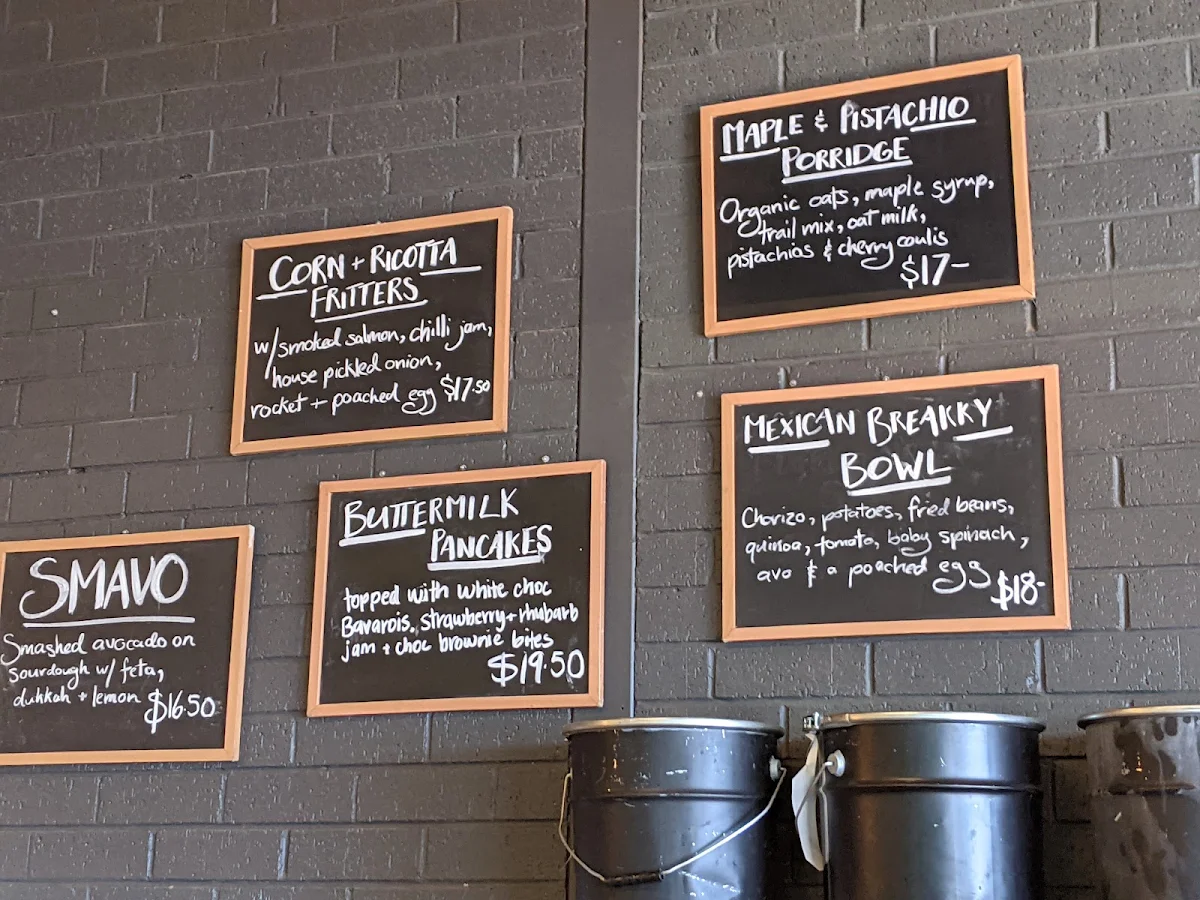 CORN + RICOTTA
FRITTERS
w/smoked salmon, chilli jam,
house pickled onion,
rocket + poached egg $17.50
SMAVO
Smashed avocado on
sourdough w/ feta,
dukkah + lemon $16.50
BUTTERMILK
PANCAKES
topped with white choc
Bavarois, strawberry + rhubarb
jam + choc brownie bites
$19.50
MAPLE & PISTACHIO
PORRIDGE
Organic oats, maple syrup,
trail mix, oat milk,
pistachios & cherry coulis
$17-
MEXICAN BREAKKY
BOWL
Chorizo, potatoes, fried beans,
quinoa, tomato, baby spinach,
avo & a poached egg
$18-